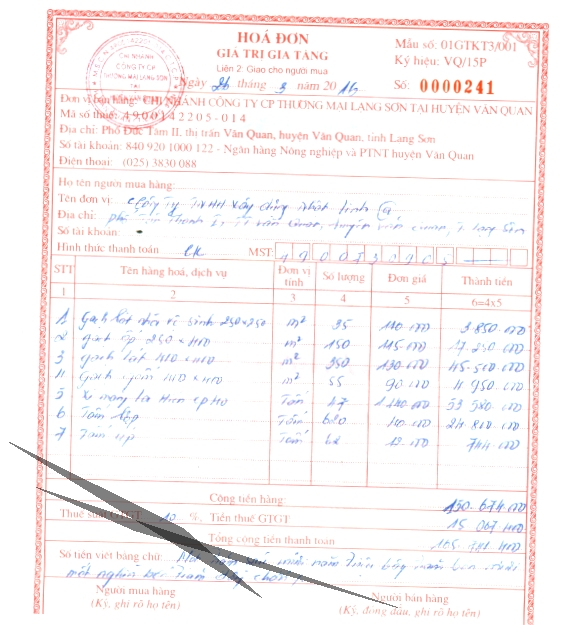 HOÁ ĐƠN
GIÁ TRỊ GIA TĂNG
Liên 2: Giao cho người mua
Ngày 26 tháng 3 năm 2016
Mẫu số: 01GTKT3/001
Ký hiệu: VQ/15P
Số: 0000241
CHI NHÁNH
CÔNG TY CP
THƯƠNG MẠI LẠNG SƠN
TẠI
Đơn vị bán hàng: CHI NHÁNH CÔNG TY CP THƯƠNG MẠI LẠNG SƠN TẠI HUYỆN VĂN QUAN
Mã số thuế: 4900142205-014
Địa chỉ: Phố Đức Tâm II, thị trấn Văn Quan, huyện Văn Quan, tỉnh Lạng Sơn
Số tài khoản: 840 920 1000 122 - Ngân hàng Nông nghiệp và PTNT huyện Văn Quan
Điện thoại: (025) 3830 088
Họ tên người mua hàng:
Tên đơn vị: Công ty TNHH xây dựng
Địa chỉ: phố TT Văn Quan, huyện Văn Quan, T. Lạng Sơn
Số tài khoản:
Hình thức thanh toán CK MST:
STT Tên hàng hoá, dịch vụ Đơn vị tính Số lượng Đơn giá Thành tiền
1 2 3 4 5 6=4x5
1 Gạch lát nền vệ sinh 250x250 m² 35 110.000 3.850.000
2 Gạch ốp 250 x 400 m² 150 115.000 17.250.000
3 Gạch lát 400 x 400 m² 350 130.000 45.500.000
4 Gạch 400 x 400 m² 55 90.000 4.950.000
5 Xi măng Tấn 47 1.140.000 53.580.000
6 Tấm lợp Tấm 620 40.000 24.800.000
7 Tấm úp Tấm 62 12.000 744.000
Cộng tiền hàng: 150.674.000
Thuế suất GTGT 10 %, Tiền thuế GTGT 15.067.400
Tổng cộng tiền thanh toán 165.741.400
Số tiền viết bằng chữ: Một trăm sáu mươi năm triệu bảy trăm bốn mươi
một nghìn bốn trăm đồng chẵn
Người mua hàng
(Ký, ghi rõ họ tên)
Người bán hàng
(Ký, đóng dấu, ghi rõ họ tên)